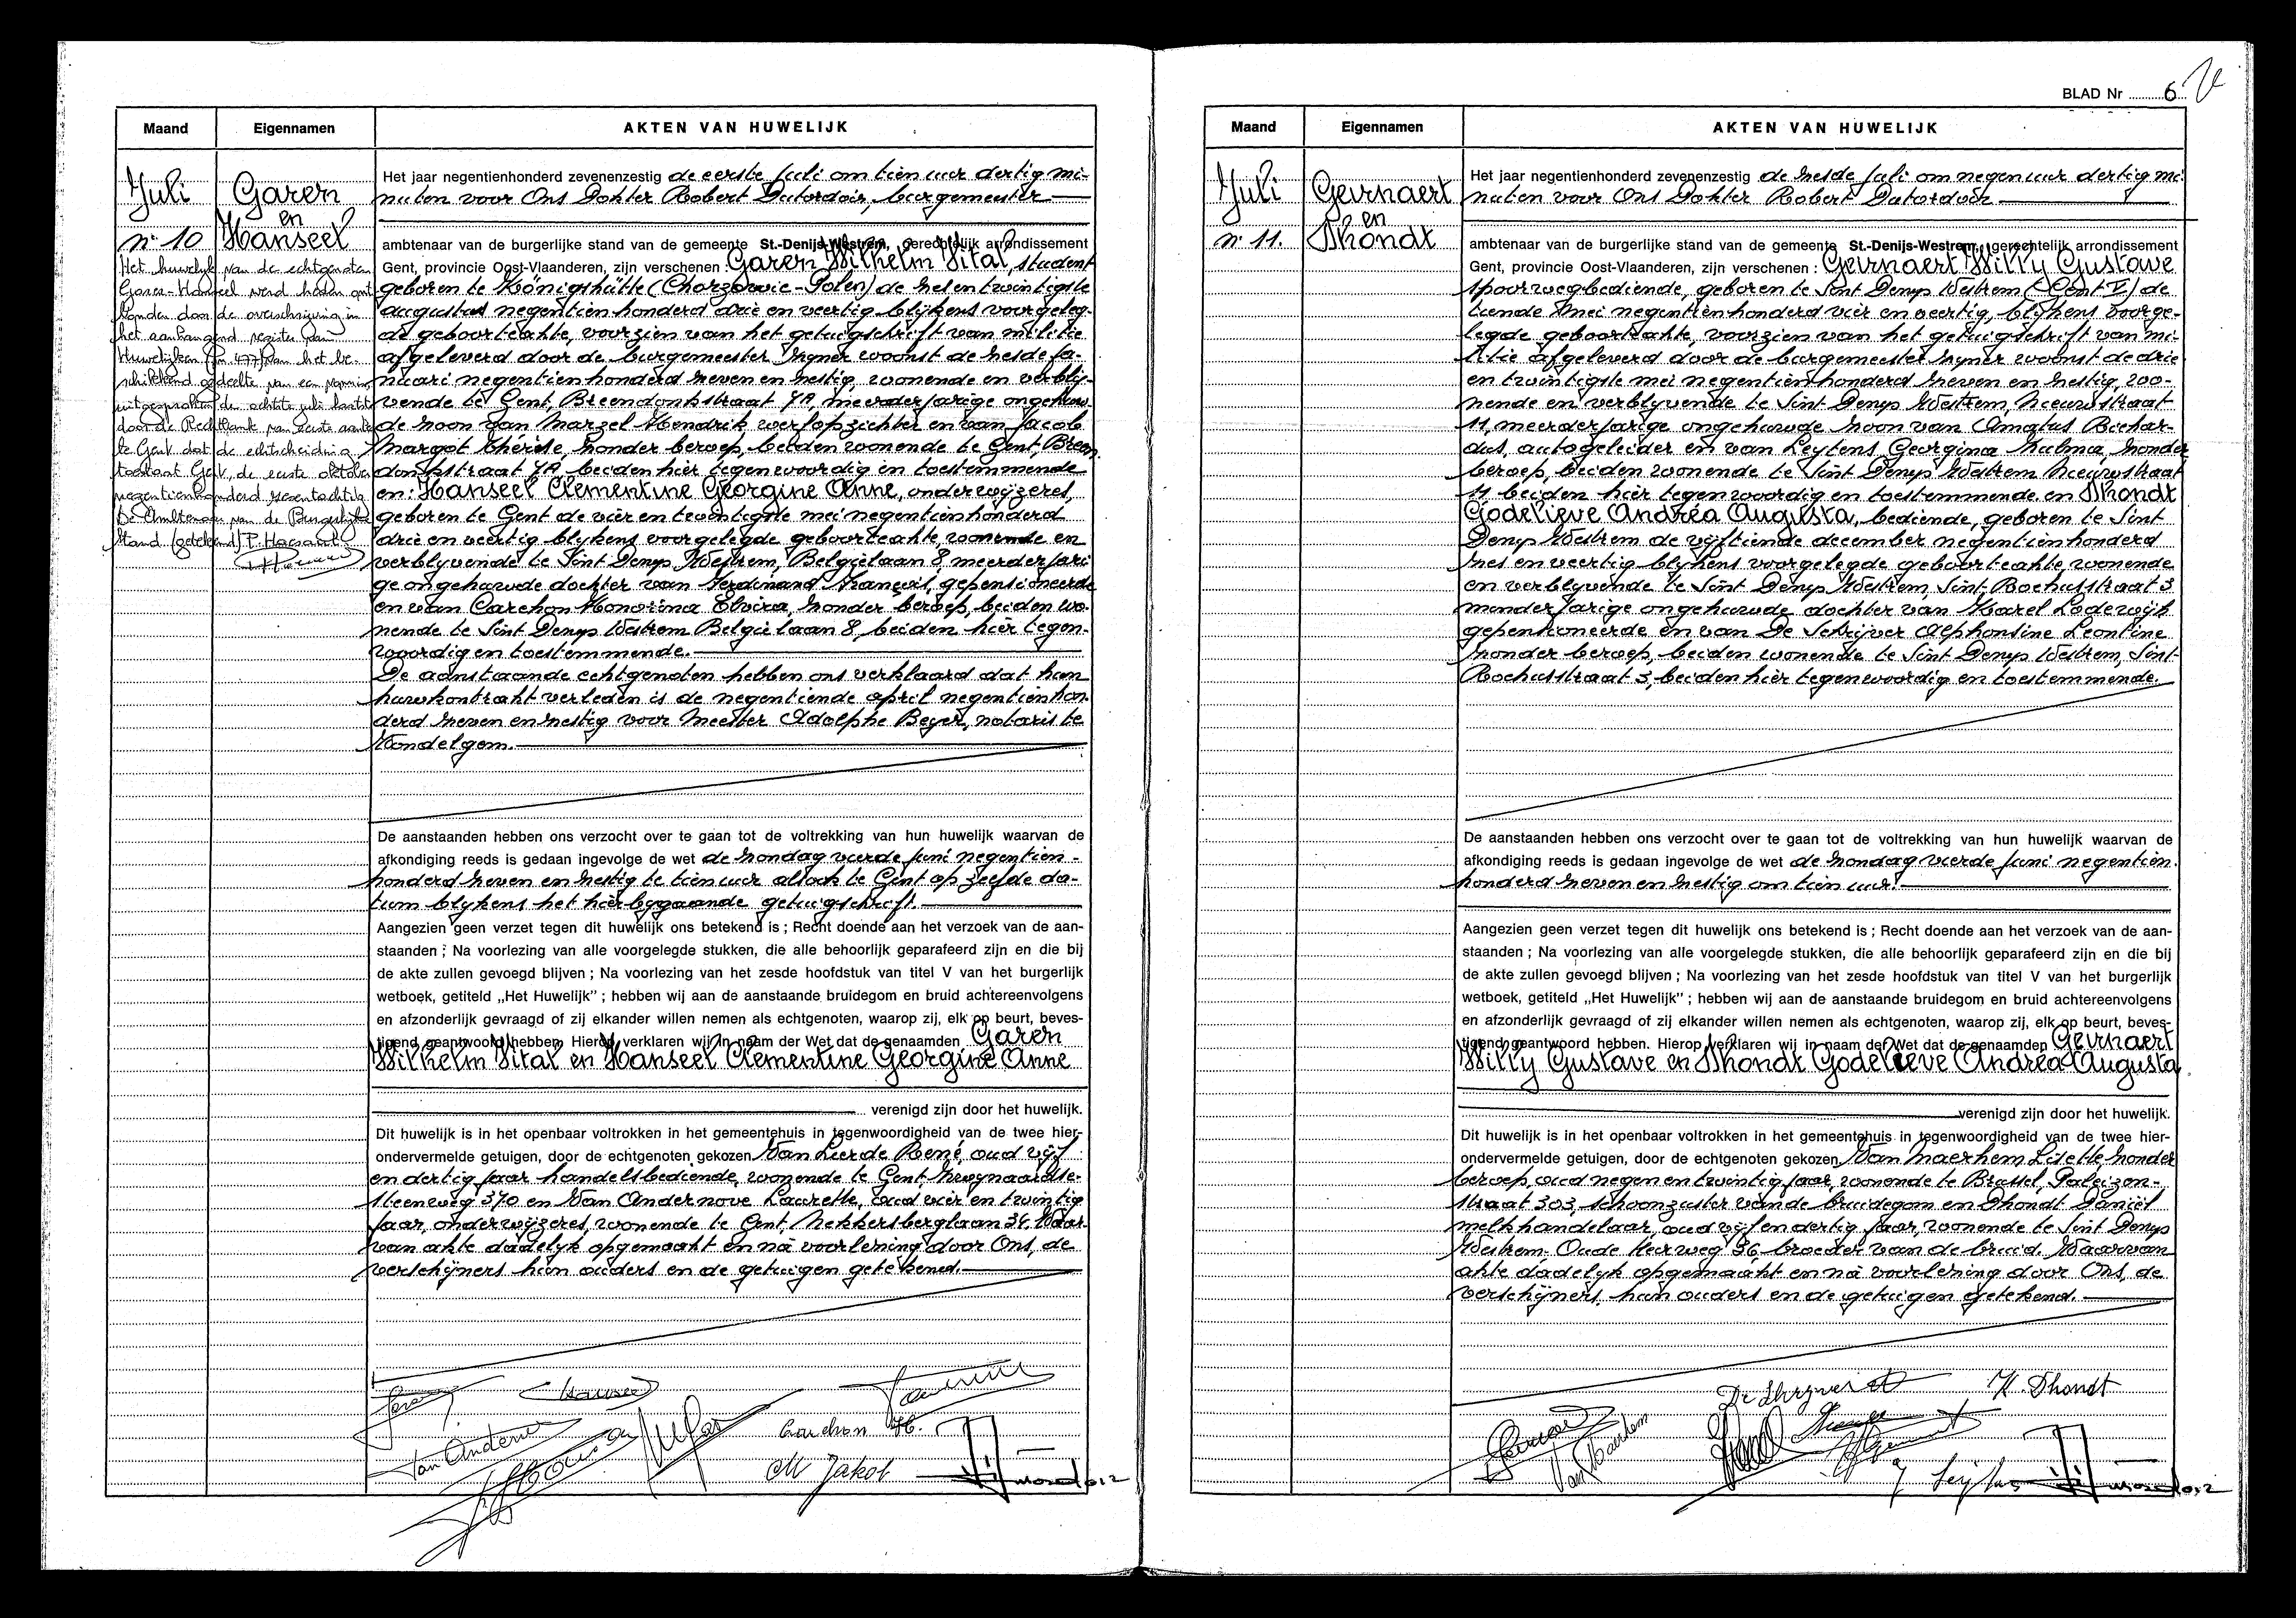 Maand Eigennamen AKTEN VAN HUWELIJK
Juli
Garen
en
Hanseel
n° 10
Het huwelijk van de echtgenoten
Garen-Hanseel werd heden ont
bonden door de overschrijving in
het aanhangend register van
Huwelijken van het be-
schikkend gedeelte van een vonnis
uitgesproken de achtste juli laatst
door de Rechtbank van eerste aanleg
te Gent dat de echtscheiding
toestaat Gent, de eerste oktober
negentienhonderd
De Ambtenaar van de Burgerlijke
Stand (getekend) P.
Het jaar negentienhonderd zevenenzestig de eerste juli om tien uur dertig mi-
nuten voor Ons Dokter Robert Dutordoir, burgemeester
ambtenaar van de burgerlijke stand van de gemeente St.-Denijs-Westrem, gerechtelijk arrondissement
Gent, provincie Oost-Vlaanderen, zijn verschenen : Garen Wilhelm Vital, student
geboren te Königshütte (Chorzowie-Polen) de zesentwintigste
augustus negentienhonderd drie en veertig blijkens voorgeleg-
de geboorteakte, voorzien van het getuigschrift van militie
afgeleverd door de burgemeester zijner woonst de zesde ja-
nuari negentienhonderd zeven en zestig, wonende en verblij-
vende te Gent, Breendonkstraat 7A, meerderjarige ongehuw-
de zoon van Marzel Hendrik werfopzichter en van Jacob
Margot Thérèse, zonder beroep, beiden wonende te Gent, Breen-
donkstraat 7A, beiden hier tegenwoordig en toestemmende
en: Hanseel Clementine Georgine Anne, onderwijzeres,
geboren te Gent de vier en twintigste mei negentienhonderd
drie en veertig blijkens voorgelegde geboorteakte wonende en
verblyvende te Sint Denys Westrem, Belgiëlaan 8, meerderjari
ge ongehuwde dochter van Ferdinand François, gepensioneerde
en van Carchon Honorina Elvira, zonder beroep, beiden wo-
nende te Sint Denys Westrem Belgiëlaan 8, beiden hier tegen-
woordig en toestemmende.
De aanstaande echtgenoten hebben ons verklaard dat hun
huwkontrakt verleden is de negentiende april negentienhon-
derd zeven en zestig voor Meester Adolphe Beyer, notaris te
Wondelgem.
De aanstaanden hebben ons verzocht over te gaan tot de voltrekking van hun huwelijk waarvan de
afkondiging reeds is gedaan ingevolge de wet de zondag vierde juni negentien-
honderd zeven en zestig te tien uur alsook te Gent op zelfde da-
tum blykens het hierbygaande getuigschrift.
Aangezien geen verzet tegen dit huwelijk ons betekend is ; Recht doende aan het verzoek van de aan-
staanden ; Na voorlezing van alle voorgelegde stukken, die alle behoorlijk geparafeerd zijn en die bij
de akte zullen gevoegd blijven ; Na voorlezing van het zesde hoofdstuk van titel V van het burgerlijk
wetboek, getiteld „Het Huwelijk" ; hebben wij aan de aanstaande bruidegom en bruid achtereenvolgens
en afzonderlijk gevraagd of zij elkander willen nemen als echtgenoten, waarop zij, elk op beurt, beves-
tigend geantwoord hebben. Hierop verklaren wij in naam der Wet dat de genaamden Garen
Wilhelm Vital en Hanseel Clementine Georgine Anne
verenigd zijn door het huwelijk.
Dit huwelijk is in het openbaar voltrokken in het gemeentehuis in tegenwoordigheid van de twee hier-
ondervermelde getuigen, door de echtgenoten gekozen Van Lierde René, oud vijf
en dertig jaar handelsbediende, wonende te Gent, Zwijnaardse-
steenweg 370 en Van Andernove Laurette, oud vier en twintig
jaar, onderwijzeres, wonende te Gent, Nekkersberglaan 34. Waar-
van akte dadelyk opgemaakt en na voorlezing door Ons, de
verschijners hun ouders en de getuigen getekend.
Carchon H.
M Jakob
BLAD Nr 6
Maand Eigennamen AKTEN VAN HUWELIJK
Juli
Geirnaert
en
Dhondt
n° 11.
Het jaar negentienhonderd zevenenzestig de zesde juli om negen uur dertig mi
nuten voor Ons Dokter Robert Dutordoir
ambtenaar van de burgerlijke stand van de gemeente St.-Denijs-Westrem, gerechtelijk arrondissement
Gent, provincie Oost-Vlaanderen, zijn verschenen : Geirnaert Willy Gustave
spoorwegbediende, geboren te Sint Denys Westrem (Gent V) de
tiende mei negentienhonderd vier en veertig, blijkens voorge-
legde geboorteakte, voorzien van het getuigschrift van mi-
litie afgeleverd door de burgemeester zijner woonst de drie
en twintigste mei negentienhonderd zeven en zestig, wo-
nende en verblyvende te Sint Denys Westrem, Nieuwstraat
11, meerderjarige ongehuwde zoon van Amatus Bechar-
dus, autogeleider en van Leytens Georgina Zulma, zonder
beroep, beiden wonende te Sint Denys Westrem Nieuwstraat
11 beiden hier tegenwoordig en toestemmende. en Dhondt
Godelieve Andréa Augusta, bediende, geboren te Sint
Denys Westrem de vijftiende december negentienhonderd
zes en veertig blykens voorgelegde geboorteakte, wonende
en verblyvende te Sint Denys Westrem, Sint-Rochusstraat 3
minderjarige ongehuwde dochter van Karel Lodewijk
gepensioneerde en van De Schrijver Alphonsine Leontine
zonder beroep, beiden wonende te Sint Denys Westrem, Sint-
Rochusstraat 3, beiden hier tegenwoordig en toestemmende.
De aanstaanden hebben ons verzocht over te gaan tot de voltrekking van hun huwelijk waarvan de
afkondiging reeds is gedaan ingevolge de wet de zondag vierde juni negentien.
honderd zeven en zestig om tien uur.
Aangezien geen verzet tegen dit huwelijk ons betekend is ; Recht doende aan het verzoek van de aan-
staanden ; Na voorlezing van alle voorgelegde stukken, die alle behoorlijk geparafeerd zijn en die bij
de akte zullen gevoegd blijven ; Na voorlezing van het zesde hoofdstuk van titel V van het burgerlijk
wetboek, getiteld „Het Huwelijk" ; hebben wij aan de aanstaande bruidegom en bruid achtereenvolgens
en afzonderlijk gevraagd of zij elkander willen nemen als echtgenoten, waarop zij, elk op beurt, beves-
tigend geantwoord hebben. Hierop verklaren wij in naam der Wet dat de genaamden Geirnaert
Willy Gustave en Dhondt Godelieve Andréa Augusta
verenigd zijn door het huwelijk.
Dit huwelijk is in het openbaar voltrokken in het gemeentehuis in tegenwoordigheid van de twee hier-
ondervermelde getuigen, door de echtgenoten gekozen Van Maerhem Lisette zonder
beroep, oud negen en twintig jaar, wonende te Brussel, Paleizen-
straat 303, schoonzuster van de bruidegom en Dhondt Daniël
melkhandelaar, oud vijf en dertig jaar, wonende te Sint Denys
Westrem. Oude Heerweg 36 broeder van de bruid. Waarvan
akte dadelyk opgemaakt en na voorlezing door Ons, de
verschijners, hun ouders en de getuigen getekend.
K. Dhondt